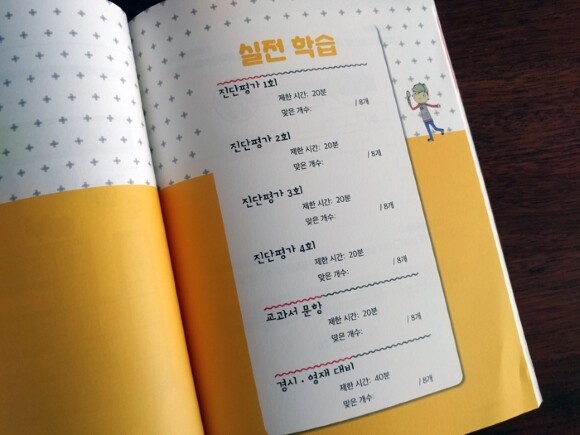 실전 학습
진단평가 1회
제한 시간: 20분
맞은 개수: / 8개
진단평가 2회
제한 시간: 20분
맞은 개수: / 8개
진단평가 3회
제한 시간: 20분
맞은 개수: / 8개
진단평가 4회
제한 시간: 20분
맞은 개수: / 8개
교과서 문항
제한 시간: 20분
맞은 개수: / 8개
경시·영재 대비
제한 시간: 40분
맞은 개수: / 8개